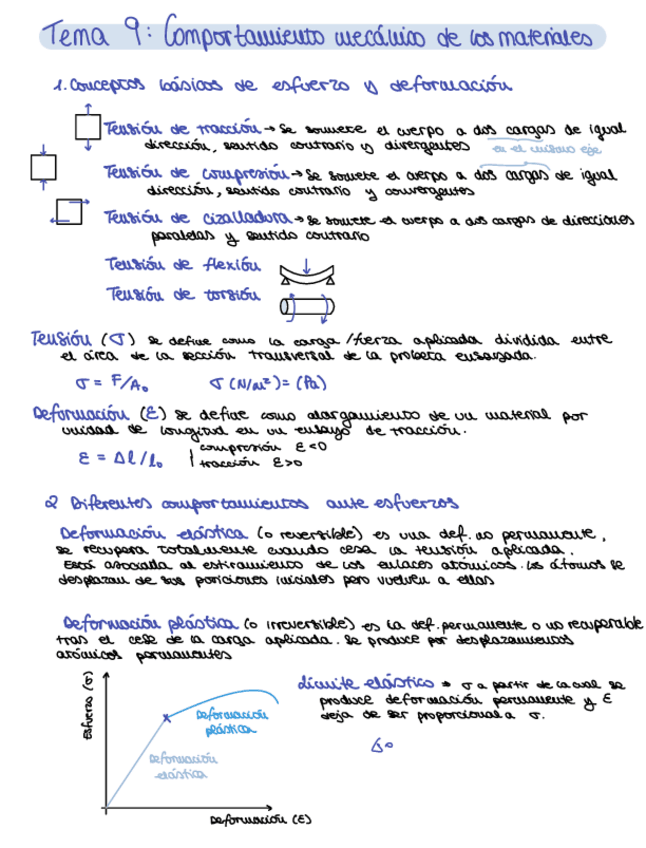 Tema 9: Comportamiento mecánico de los materiales
1. Conceptos básicos de esfuerzo y deformación
Tensión de tracción → se somete el cuerpo a dos cargas de igual
dirección, sentido contrario y divergentes en el mismo eje
Tensión de compresión → se somete el cuerpo a dos cargas de igual
dirección, sentido contrario y convergentes
Tensión de cizalladura → se somete el cuerpo a dos cargas de direcciones
paralelas y sentido contrario
Tensión de flexión
Tensión de torsión
Tensión (σ) se define como la carga/fuerza aplicada dividida entre
el área de la sección transversal de la probeta ensayada.
σ = F/A₀ σ (N/m²) = (Pa)
Deformación (ε) se define como alargamiento de un material por
unidad de longitud en un ensayo de tracción.
ε = Δl/l₀
compresión ε<0
tracción ε>0
2 Diferentes comportamientos ante esfuerzos
Deformación elástica (o reversible) es una def. no permanente,
se recupera totalmente cuando cesa la tensión aplicada.
Está asociada al estiramiento de los enlaces atómicos. Los átomos se
desplazan de sus posiciones iniciales pero vuelven a ellas
Deformación plástica (o irreversible) es la def. permanente o no recuperable
tras el cese de la carga aplicada. Se produce por desplazamientos
atómicos permanentes
Esfuerzo (σ)
Deformación
plástica
Deformación
elástica
Deformación (ε)
Límite elástico → σ a partir de la cual se
produce deformación permanente y ε
deja de ser proporcional a σ.